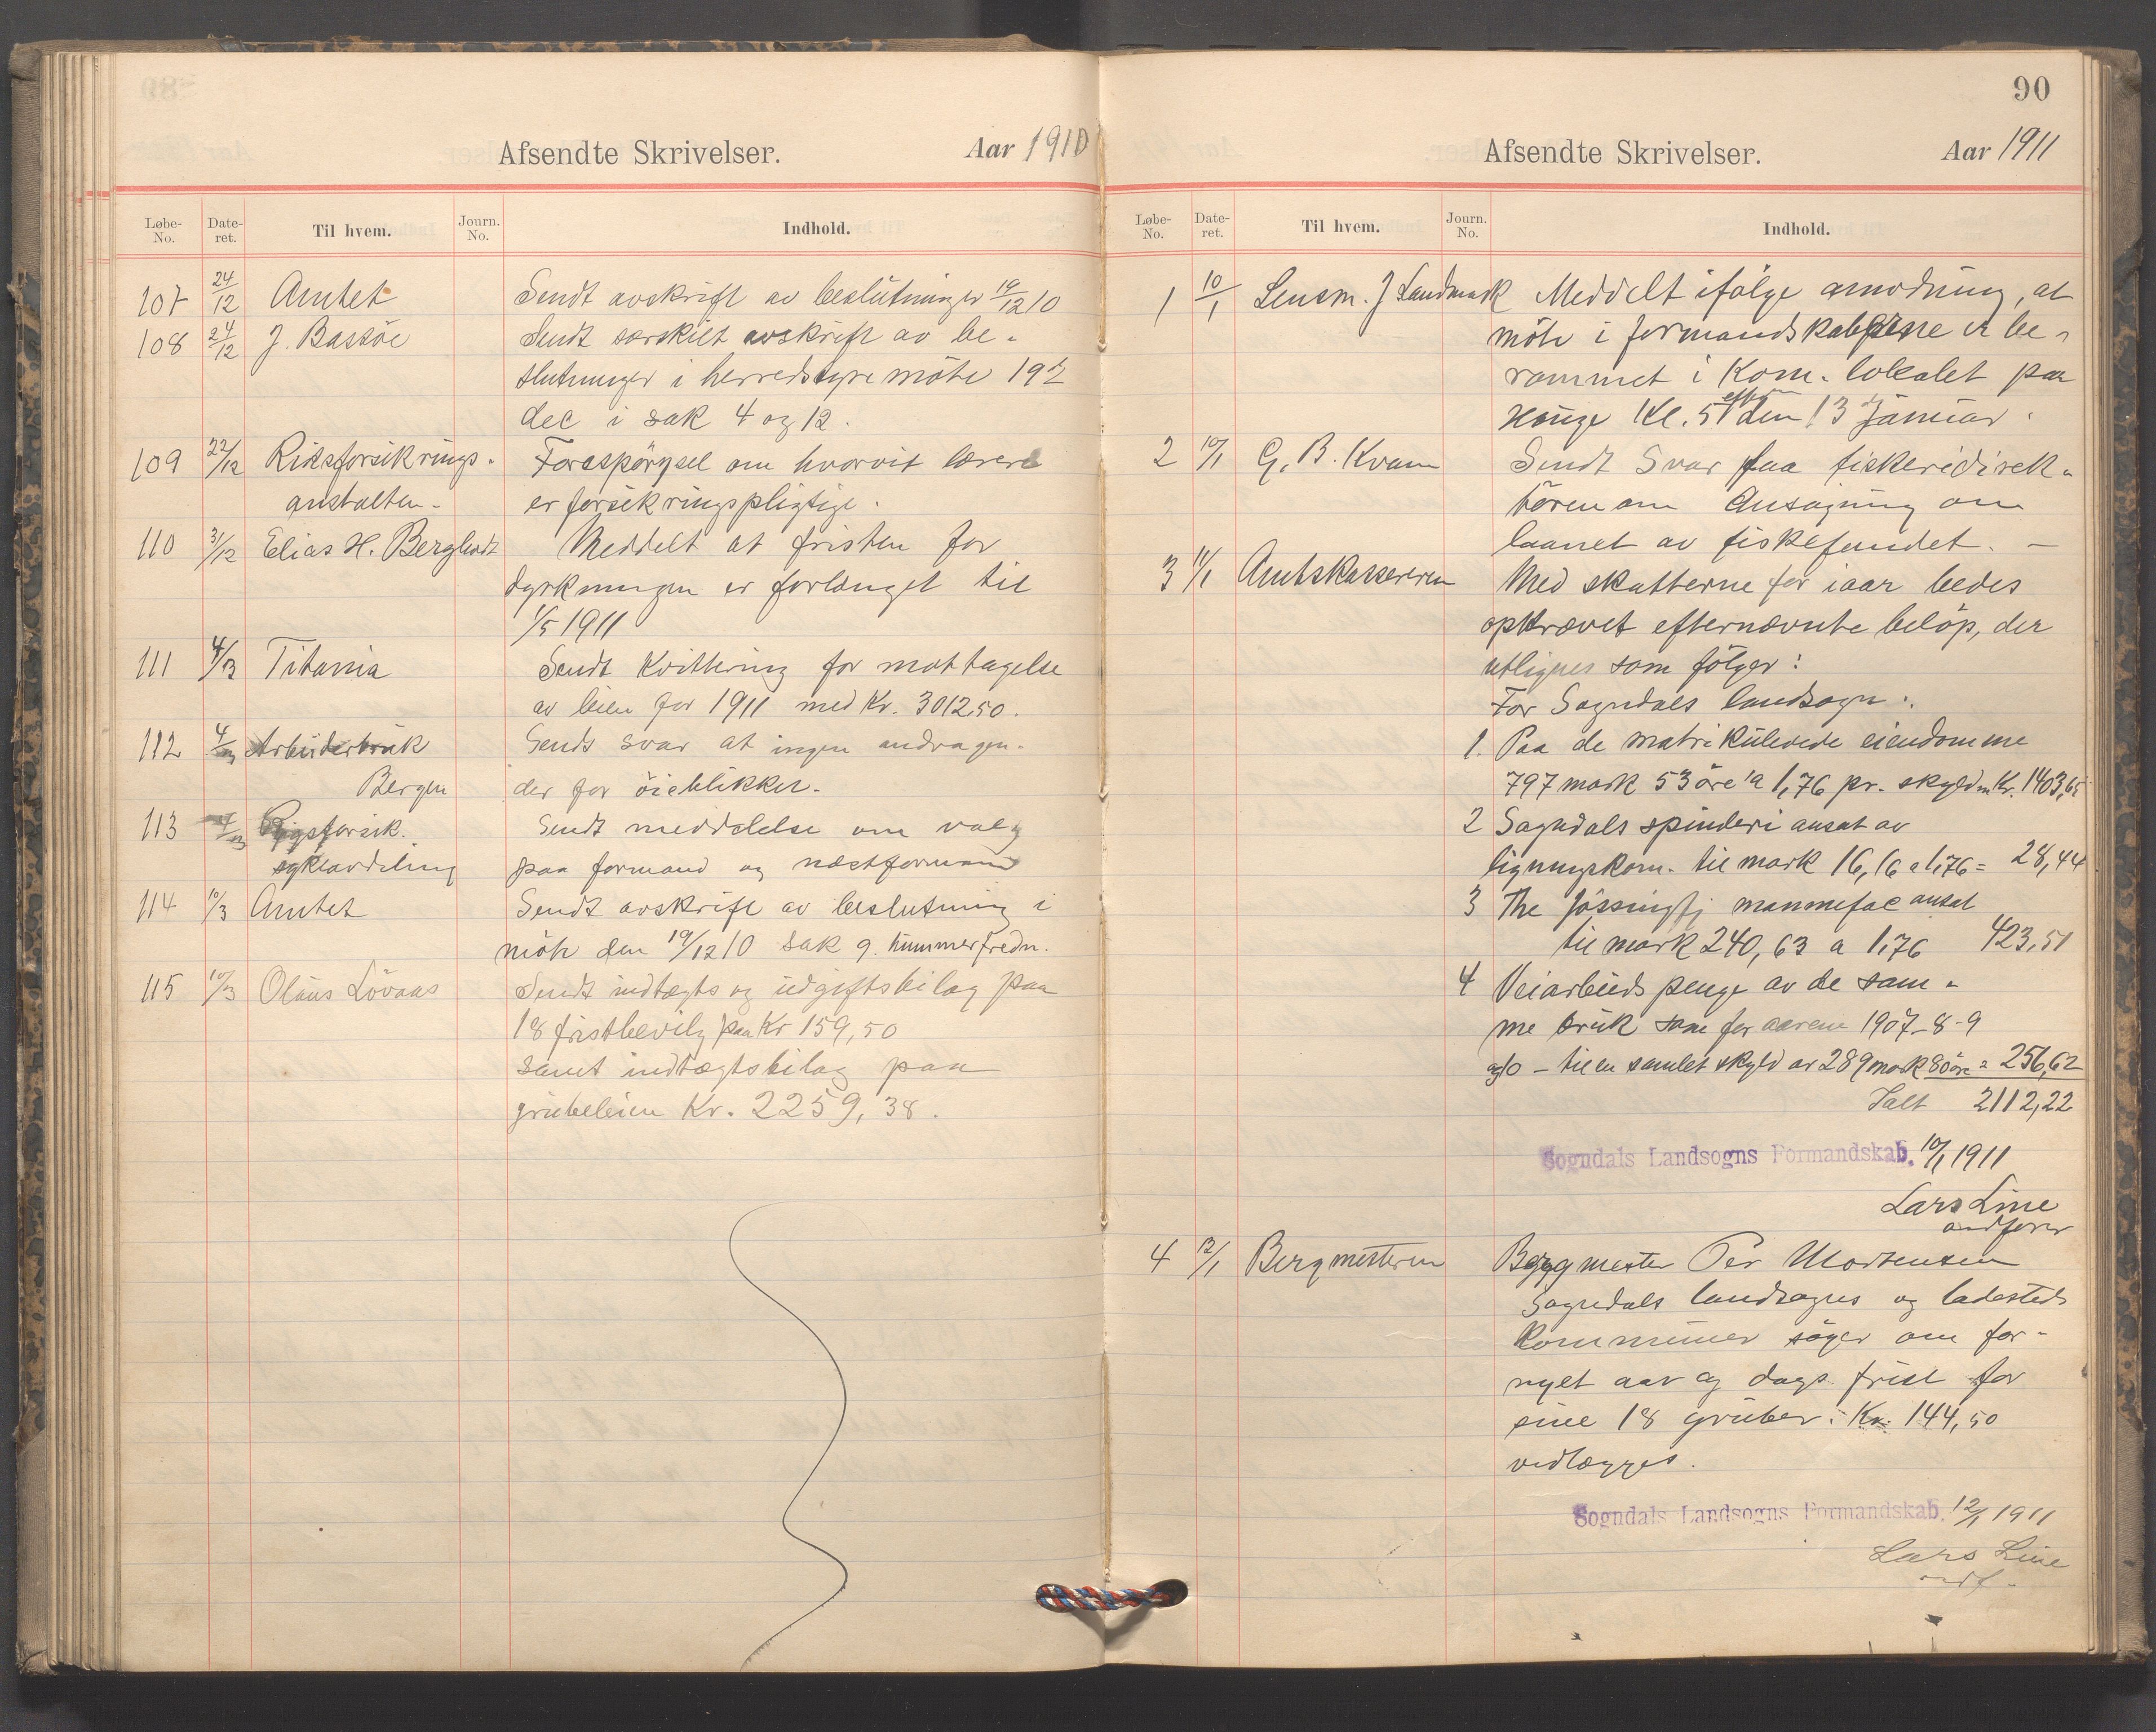 Afsendte Skrivelser. Aar 1910
Løbe-No. Date-ret. Til hvem. Journ. No. Indhold.
107 24/12 Amtet Sendt avskrift av beslutninger 19/12 10
108 24/12 J. Bassöe Sendt særskilt avskrift av be-
slutninger i herredstyremöte 19de
dec i sak 4 og 12.
109 22/12 Riksforsikrings- Forespörgsel om hvorvit lærere
anstalten. er forsikringspligtige.
110 31/12 Elias H. Berglodt Meddelt at fristen for
dyrkningen er forlænget til
1/5 1911
111 Titania Sendt Kvittering for mottagelse
av leien for 1911 med Kr. 3012.50.
112 Arbeiderbruk Sendt svar at ingen andragen-
Bergen der for öieblikket.
113 Rigsforsik. Sendt meddelelse om valg
sykeavdeling paa formand og næstformand
114 10/3 Amtet Sendt avskrift av beslutning i
möte den 19/12 10 sak 9. hummerfredn.
115 10/3 Olaus Lövaas Sendt indtægts og udgiftsbilag paa
18 fristbevilg paa Kr 159,50
samt indtægtsbilag paa
grubeleien Kr. 2259,38.
90
Afsendte Skrivelser. Aar 1911
Løbe-No. Date-ret. Til hvem. Journ. No. Indhold.
1 10/1 Lensm. J Landmark Meddelt ifölge anmodning, at
möte i formandskaberne er be-
rammet i Kom. lokalet paa
Hauge Kl. 5 eft den 13 Januar.
2 10/1 G. B. Kvam Sendt Svar fra fiskeridirek-
tören om Ansögning om
laanet av fiskefondet. —
3 11/1 Amtskassereren Med skatterne for iaar bedes
opkrævet efternævnte belöp, der
utlignes som fölger:
For Sogndals landsogn:
1. Paa de matrikulerede eiendomme
797 mark 53 öre a 1,76 pr. skyldm Kr. 1403,65
2 Sogndals spinderi ansat av
ligningskom. til mark 16,16 a 1,76 = 28,44
3 The Jössingfj mannefac ansat
til mark 240,63 a 1,76 423,51
4 Veiarbeidspenge av de sam-
me bruk som for aarene 1907-8-9
og 10 – til en samlet skyld av 289 mark 80 öre = 256,62
Ialt 2112,22
Sogndals Landsogns Formandskab. 10/1 1911
Lars Line
ordförer
4 12/1 Bergmesteren Bergmester Per Mortensen
Sogndals landsogns og ladesteds
kommuner söger om for-
nyet aar og dags frist for
sine 18 gruber. Kr. 144,50
vedlægges.
Sogndals Landsogns Formandskab. 12/1 1911
Lars Line
ordf.